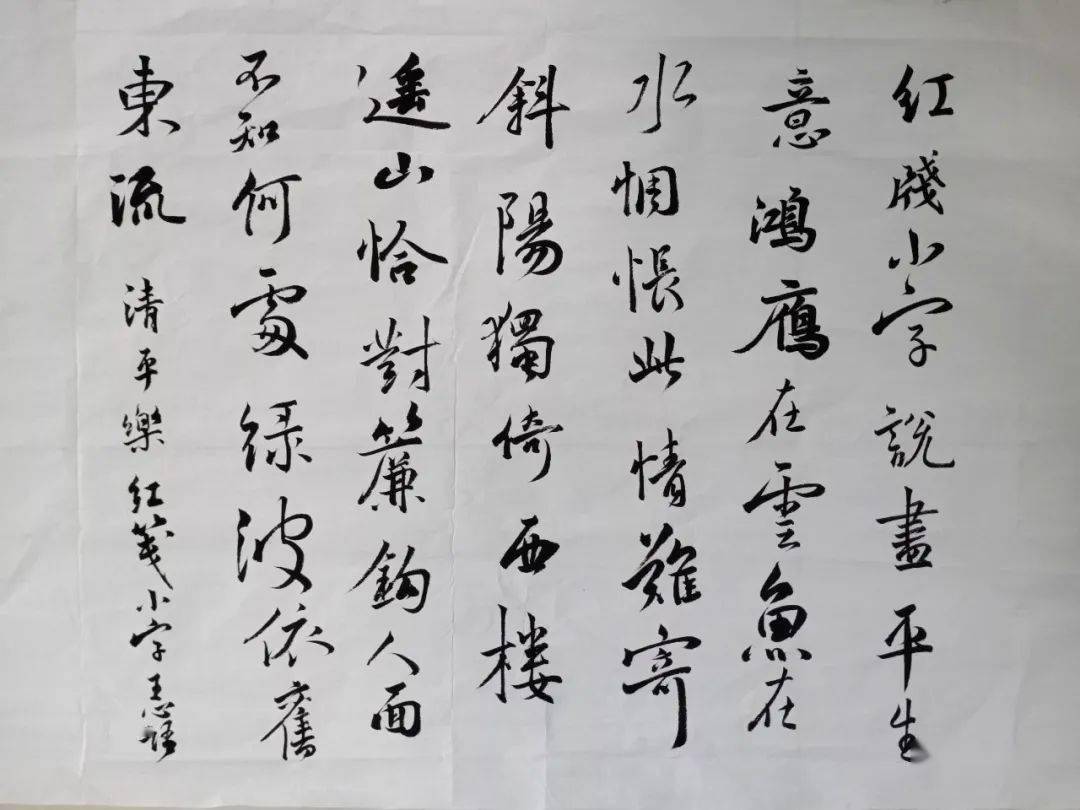 红牋小字説盡平生
意鴻鴈在雲魚在
水惆悵此情難寄
斜陽獨倚西楼
遥山恰對簾鈎人面
不知何處绿波依舊
東流 清平樂 红箋小字 王